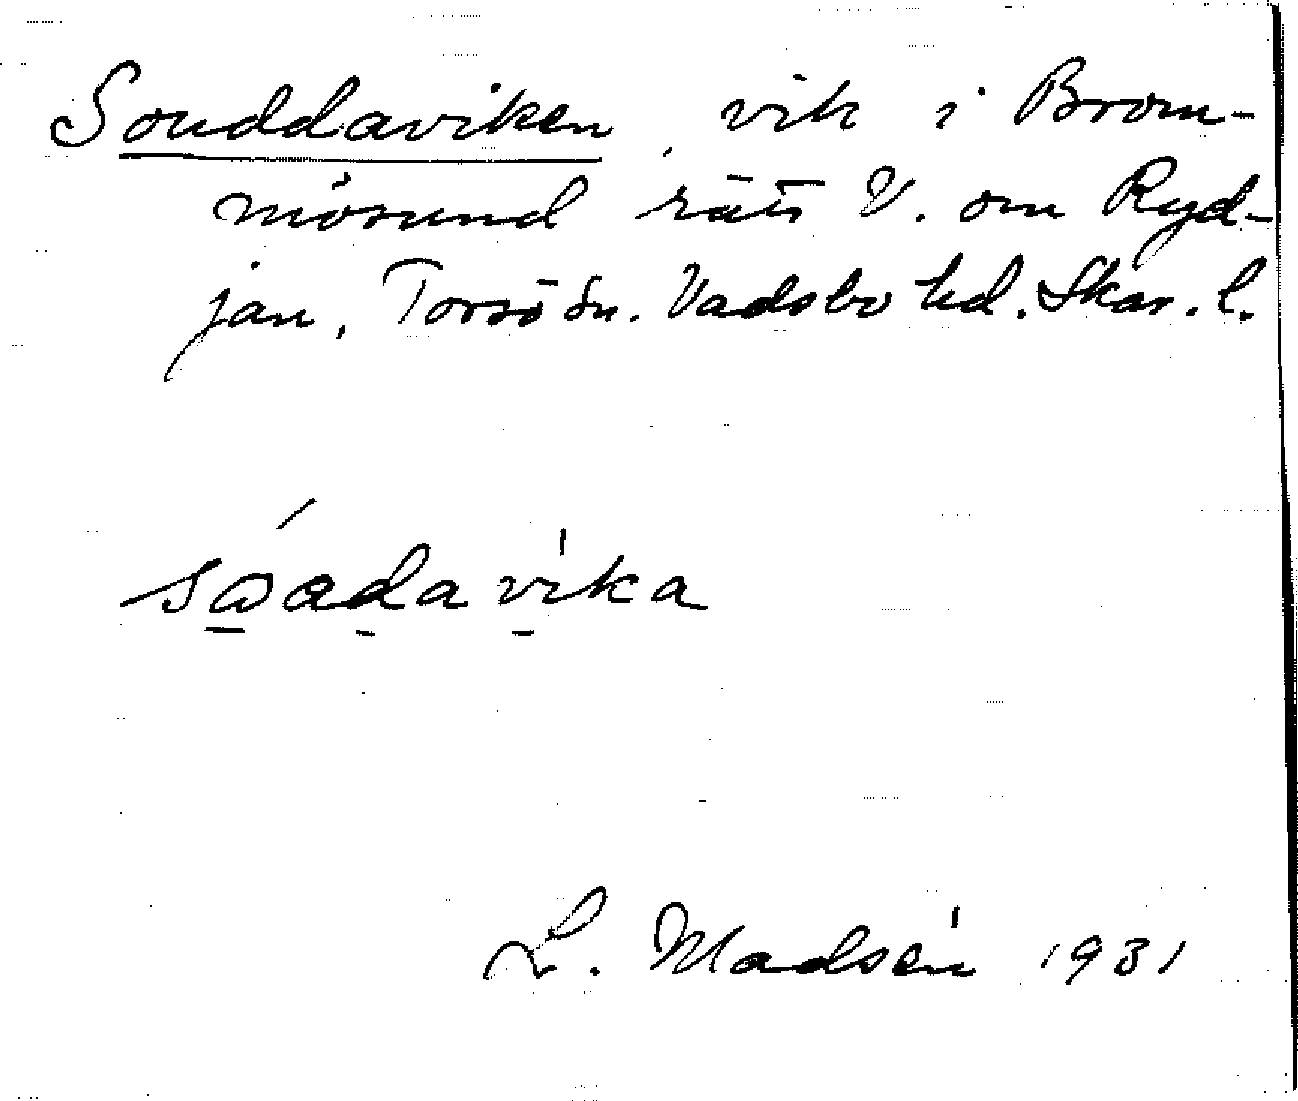 Souddaviken vik i Brom-
mösund rätt V. om Ryd-
jan, Torsö sn. Vadsbo hd. Skar. l.
L. Madsén 1931